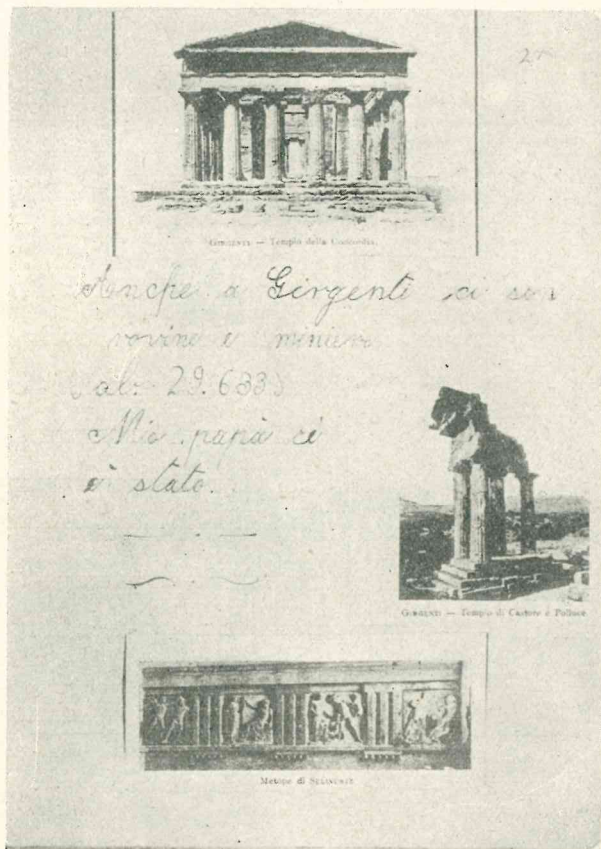 GIRGENTI — Tempio della Concordia.
Anche a Girgenti ci son
rovine e miniere
(ab. 29.633)
Mio papà ci
è stato.
GIRGENTI — Tempio di Castore e Polluce
Metope di SELINUNTE